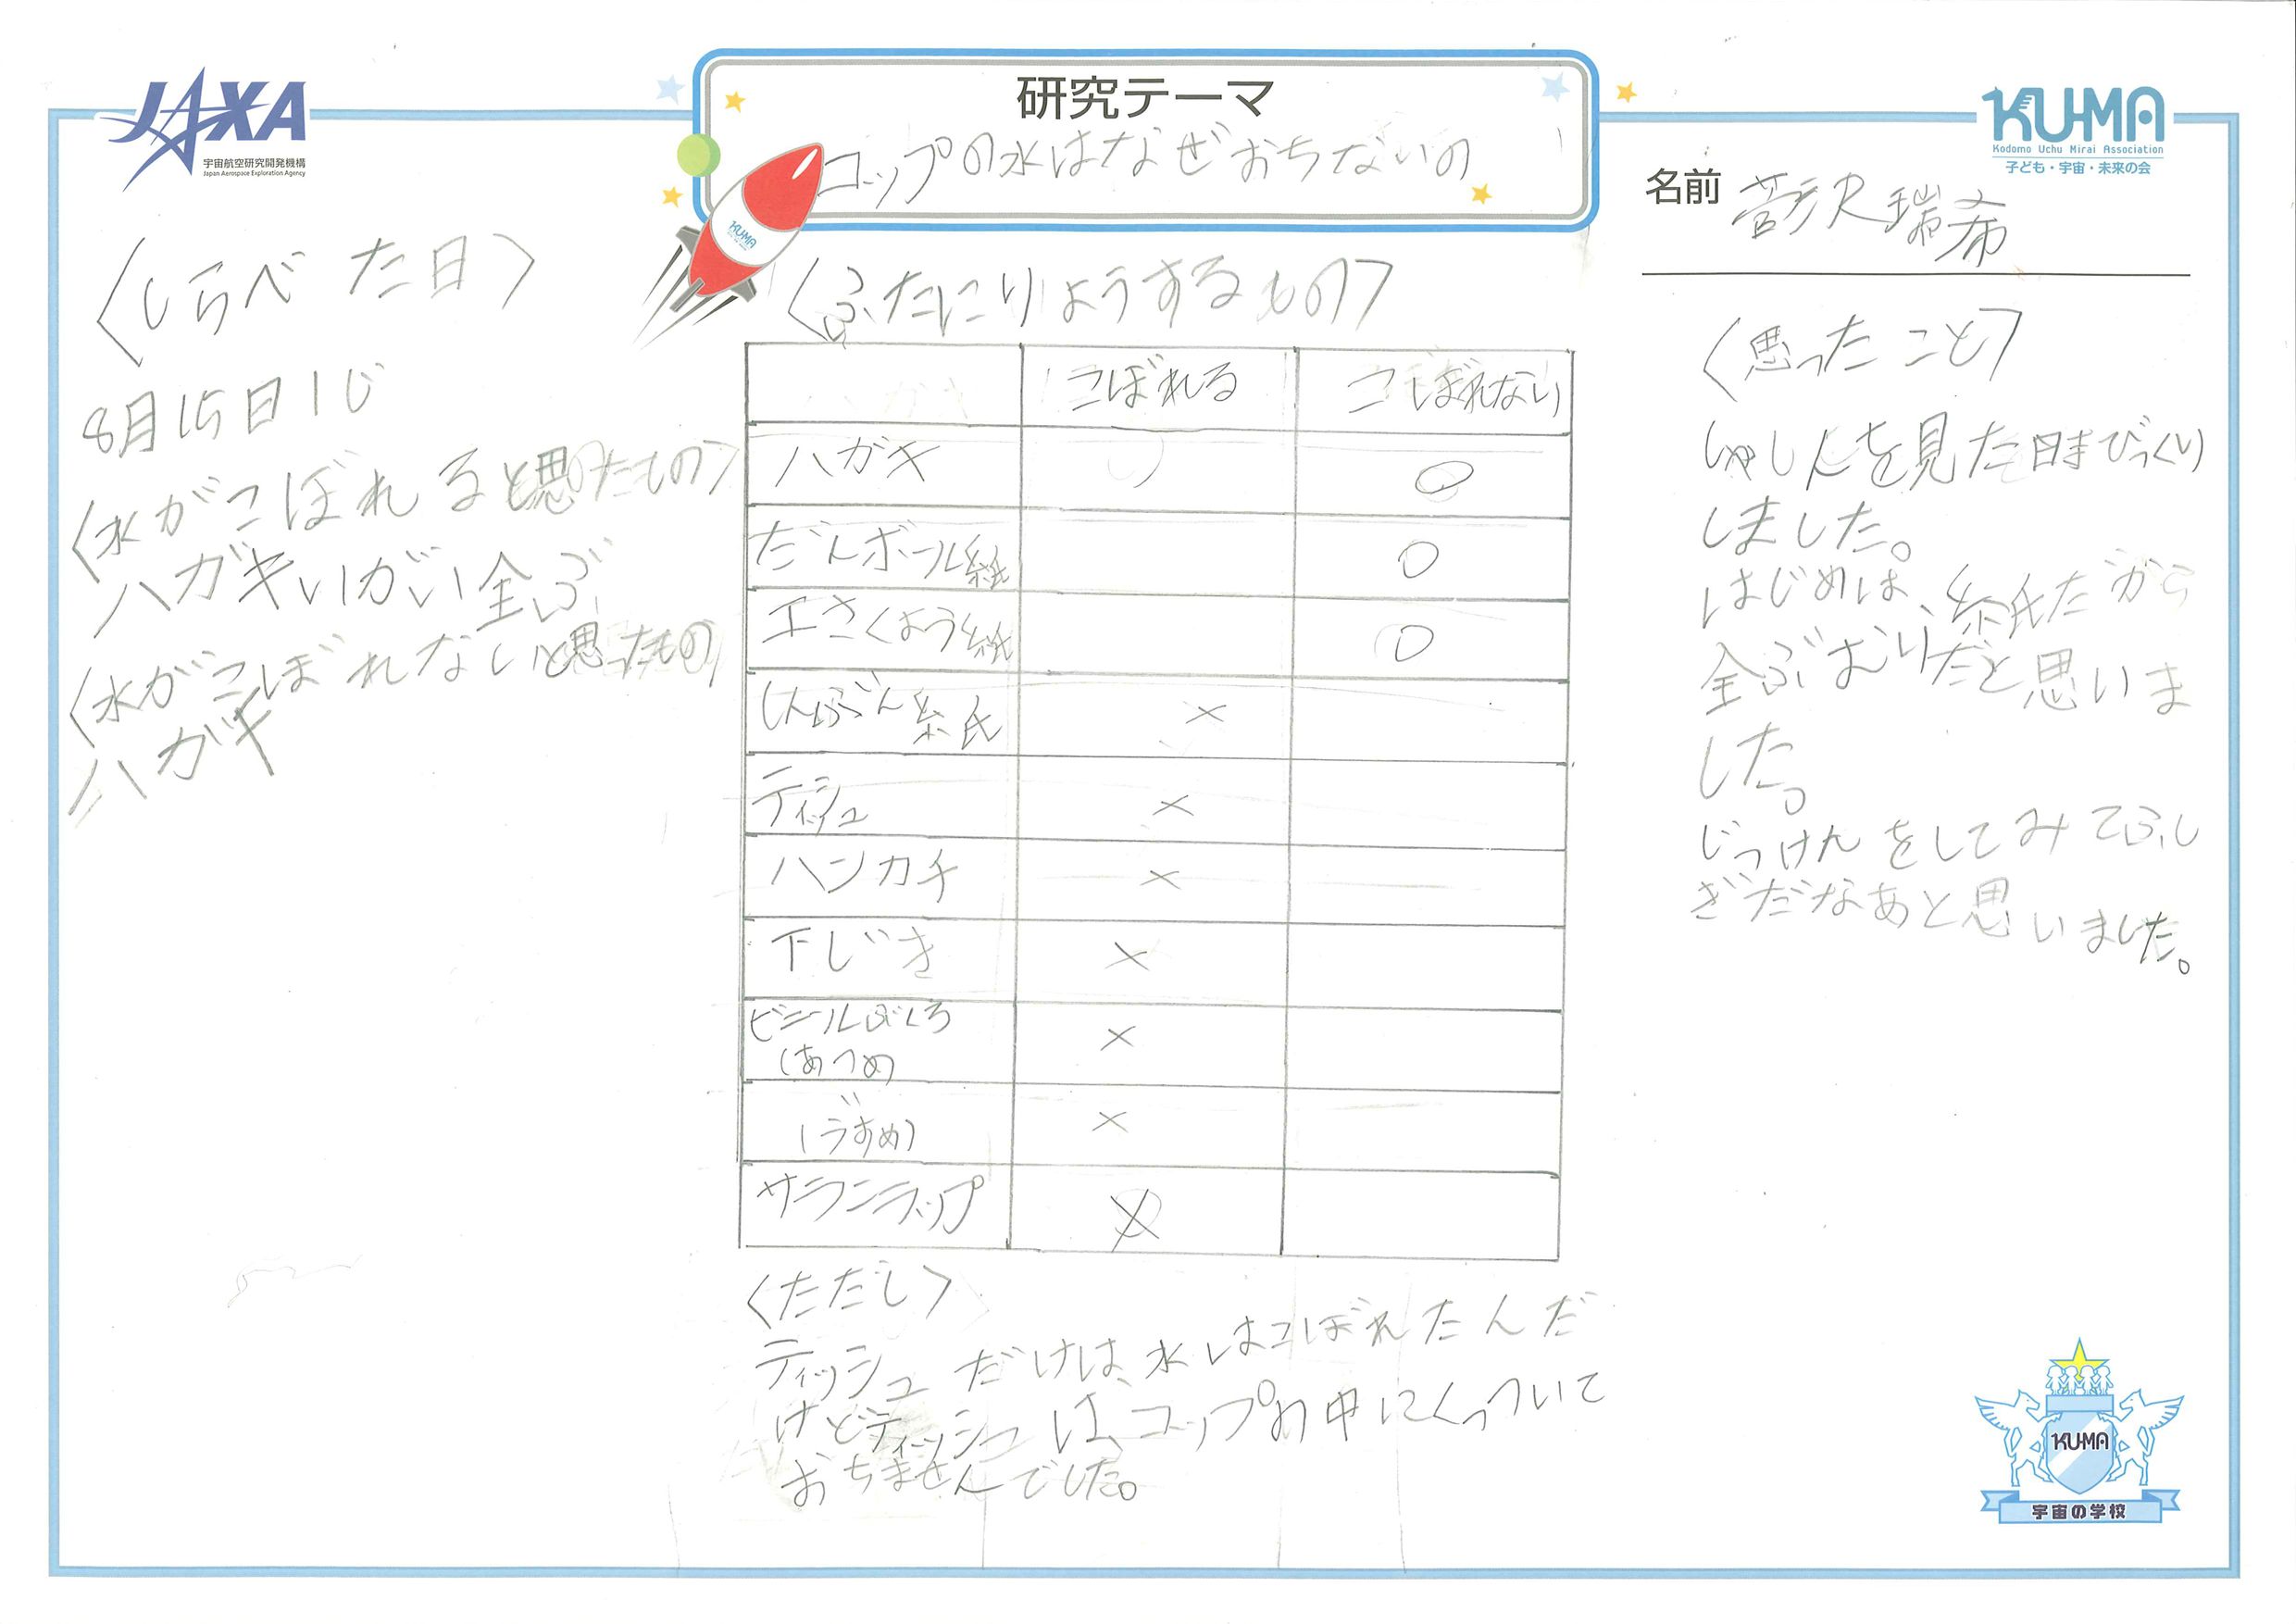 JAXA
宇宙航空研究開発機構
Japan Aerospace Exploration Agency
研究テーマ
コップの水はなぜおちないの
KUMA
KU-MA
Kodomo Uchu Mirai Association
子ども・宇宙・未来の会
名前 菅沢 瑞希
〈しらべた日〉
8月15日1じ
〈水がこぼれると思ったもの〉
ハガキいがい全ぶ
〈水がこぼれないと思ったもの
ハガキ
〈ふたにりようするもの〉
こぼれる こぼれない
ハガキ ○
だんボール紙 ○
工さくよう紙 ○
しんぶん紙 ×
ティシュ ×
ハンカチ ×
下じき ×
ビニールぶくろ
(あつめ ×
〃
(うすめ) ×
サランラップ ×
〈ただし〉
ティッシュだけは、水はこぼれたんだ
けどティッシュは、コップの中にくっついて
おちませんでした。
〈思ったこと〉
しゃしんを見た時まびっくり
しました。
はじめは、紙だから
全ぶむりだと思いま
した。
じっけんをしてみてふし
ぎだなあと思いました。
KU-MA
宇宙の学校